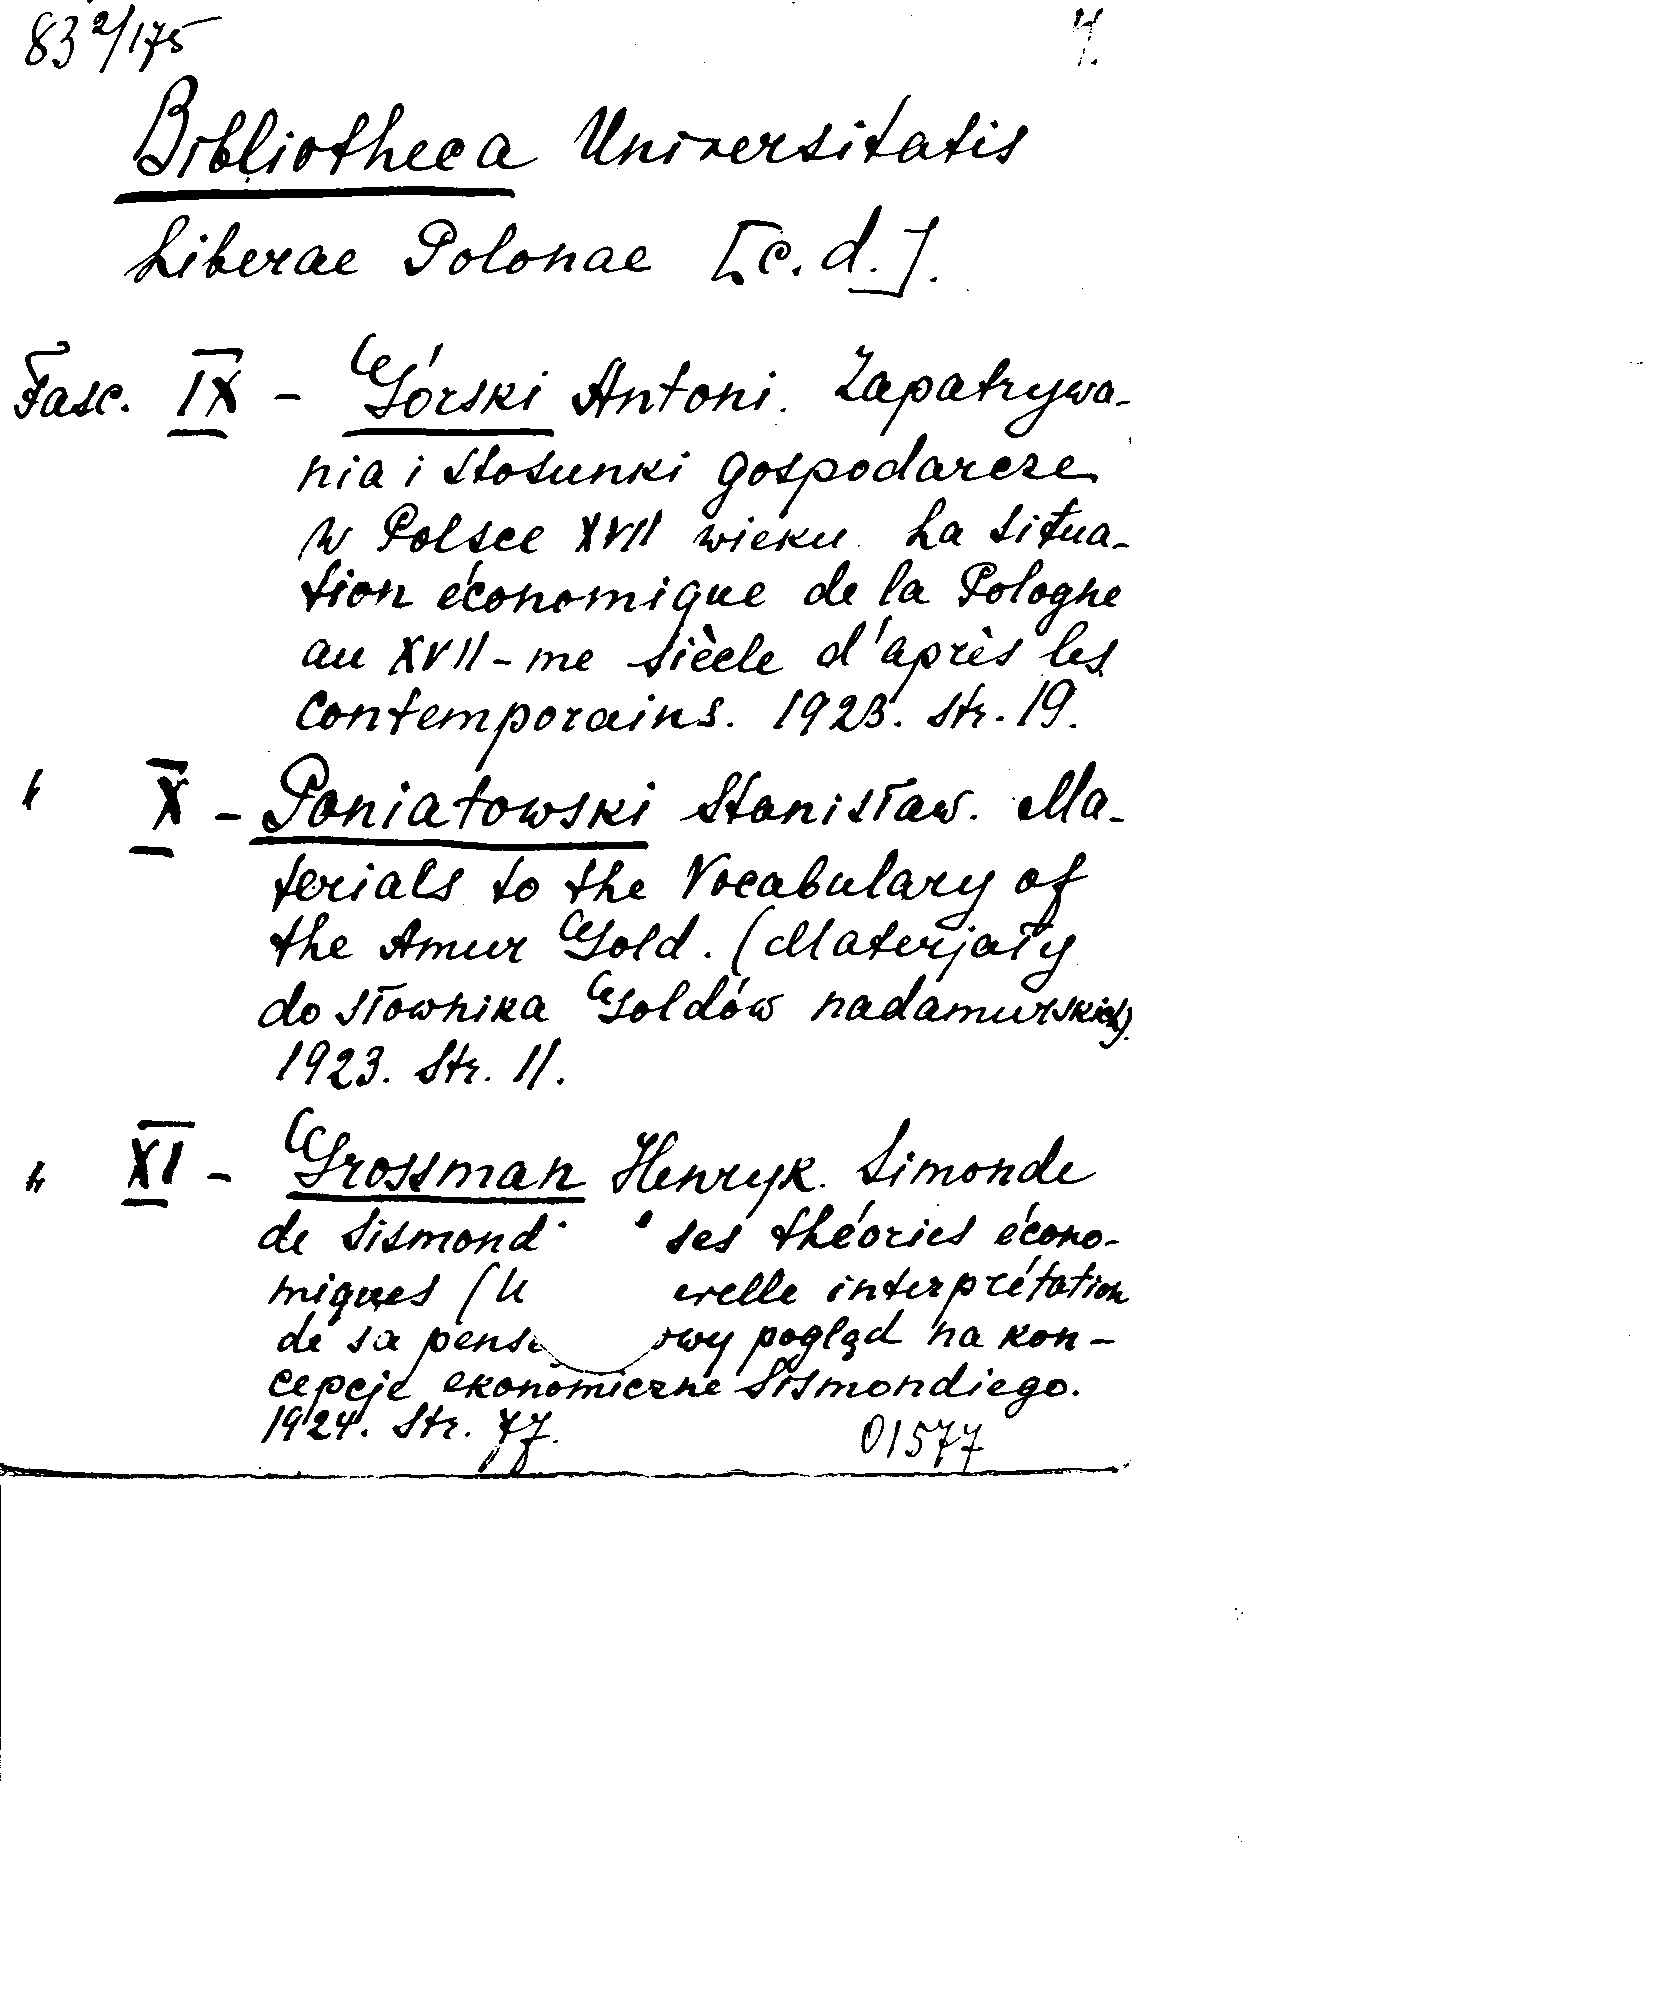 83 2/175 4.
Bibliotheca Universitatis
Liberae Polonae [c.d.].
Fasc. IX - Górski Antoni. Zapatrywa-
nia i stosunki gospodarcze
w Polsce XVII wieku. La situa-
tion économique de la Pologne
au XVII-me siècle d'après les
contemporains. 1923. str. 19.
" X - Poniatowski Stanisław. Ma-
terials to the Vocabulary of
the Amur Gold. (Materjały
do słownika Goldów nadamurskich).
1923. Str. 11.
" XI - Grossman Henryk. Simonde
de Sismond ses théories écono-
miques ( erelle interprétation
de sa pens owy pogląd na kon-
cepcje ekonomiczne Sismondiego.
1924. Str. 77.
01577